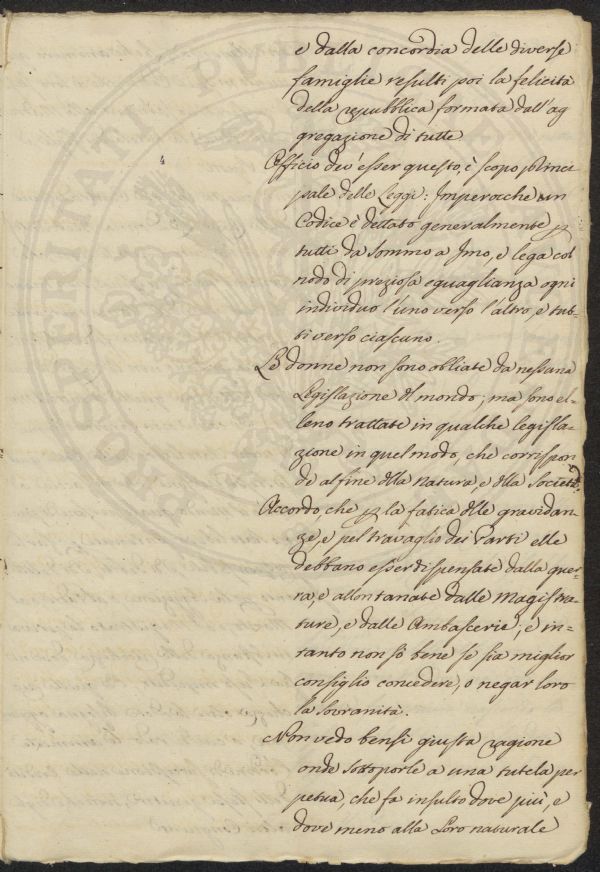 e dalla concordia delle diverse
famiglie resulti poi la felicità
della repubblica formata dall'ag
gregazione di tutte
Officio dev'esser questo, è scopo princi
pale delle Leggi: Imperocche un
Codice è dettato generalmente p
tutti da sommo a Imo, e lega col
nodo di preziosa eguaglianza ogni
individuo l'uno verso l'altro, e tut=
ti verso ciascuno.
Le donne non sono obliate da nessuna
Legislazione del mondo; ma sono el=
leno trattate in qualche legisla=
zione in quel modo, che corrispon
de al fine della natura, e della Società?
Accordo, che p la fatica delle gravidan=
ze, e pel travaglio dei Parti elle
debbano esser dispensate dalla guer=
ra, e allontanate dalle Magistra=
ture, e dalle Ambascerie; e in=
tanto non sò bene se sia miglior
consiglio concedere, o negar loro
la sovranità.
Non vedo bensì giusta ragione
onde sottoporle a una tutela per
petua, che fa insulto dove più, e
dove meno alla Loro naturale
PROSPERITATI PUB